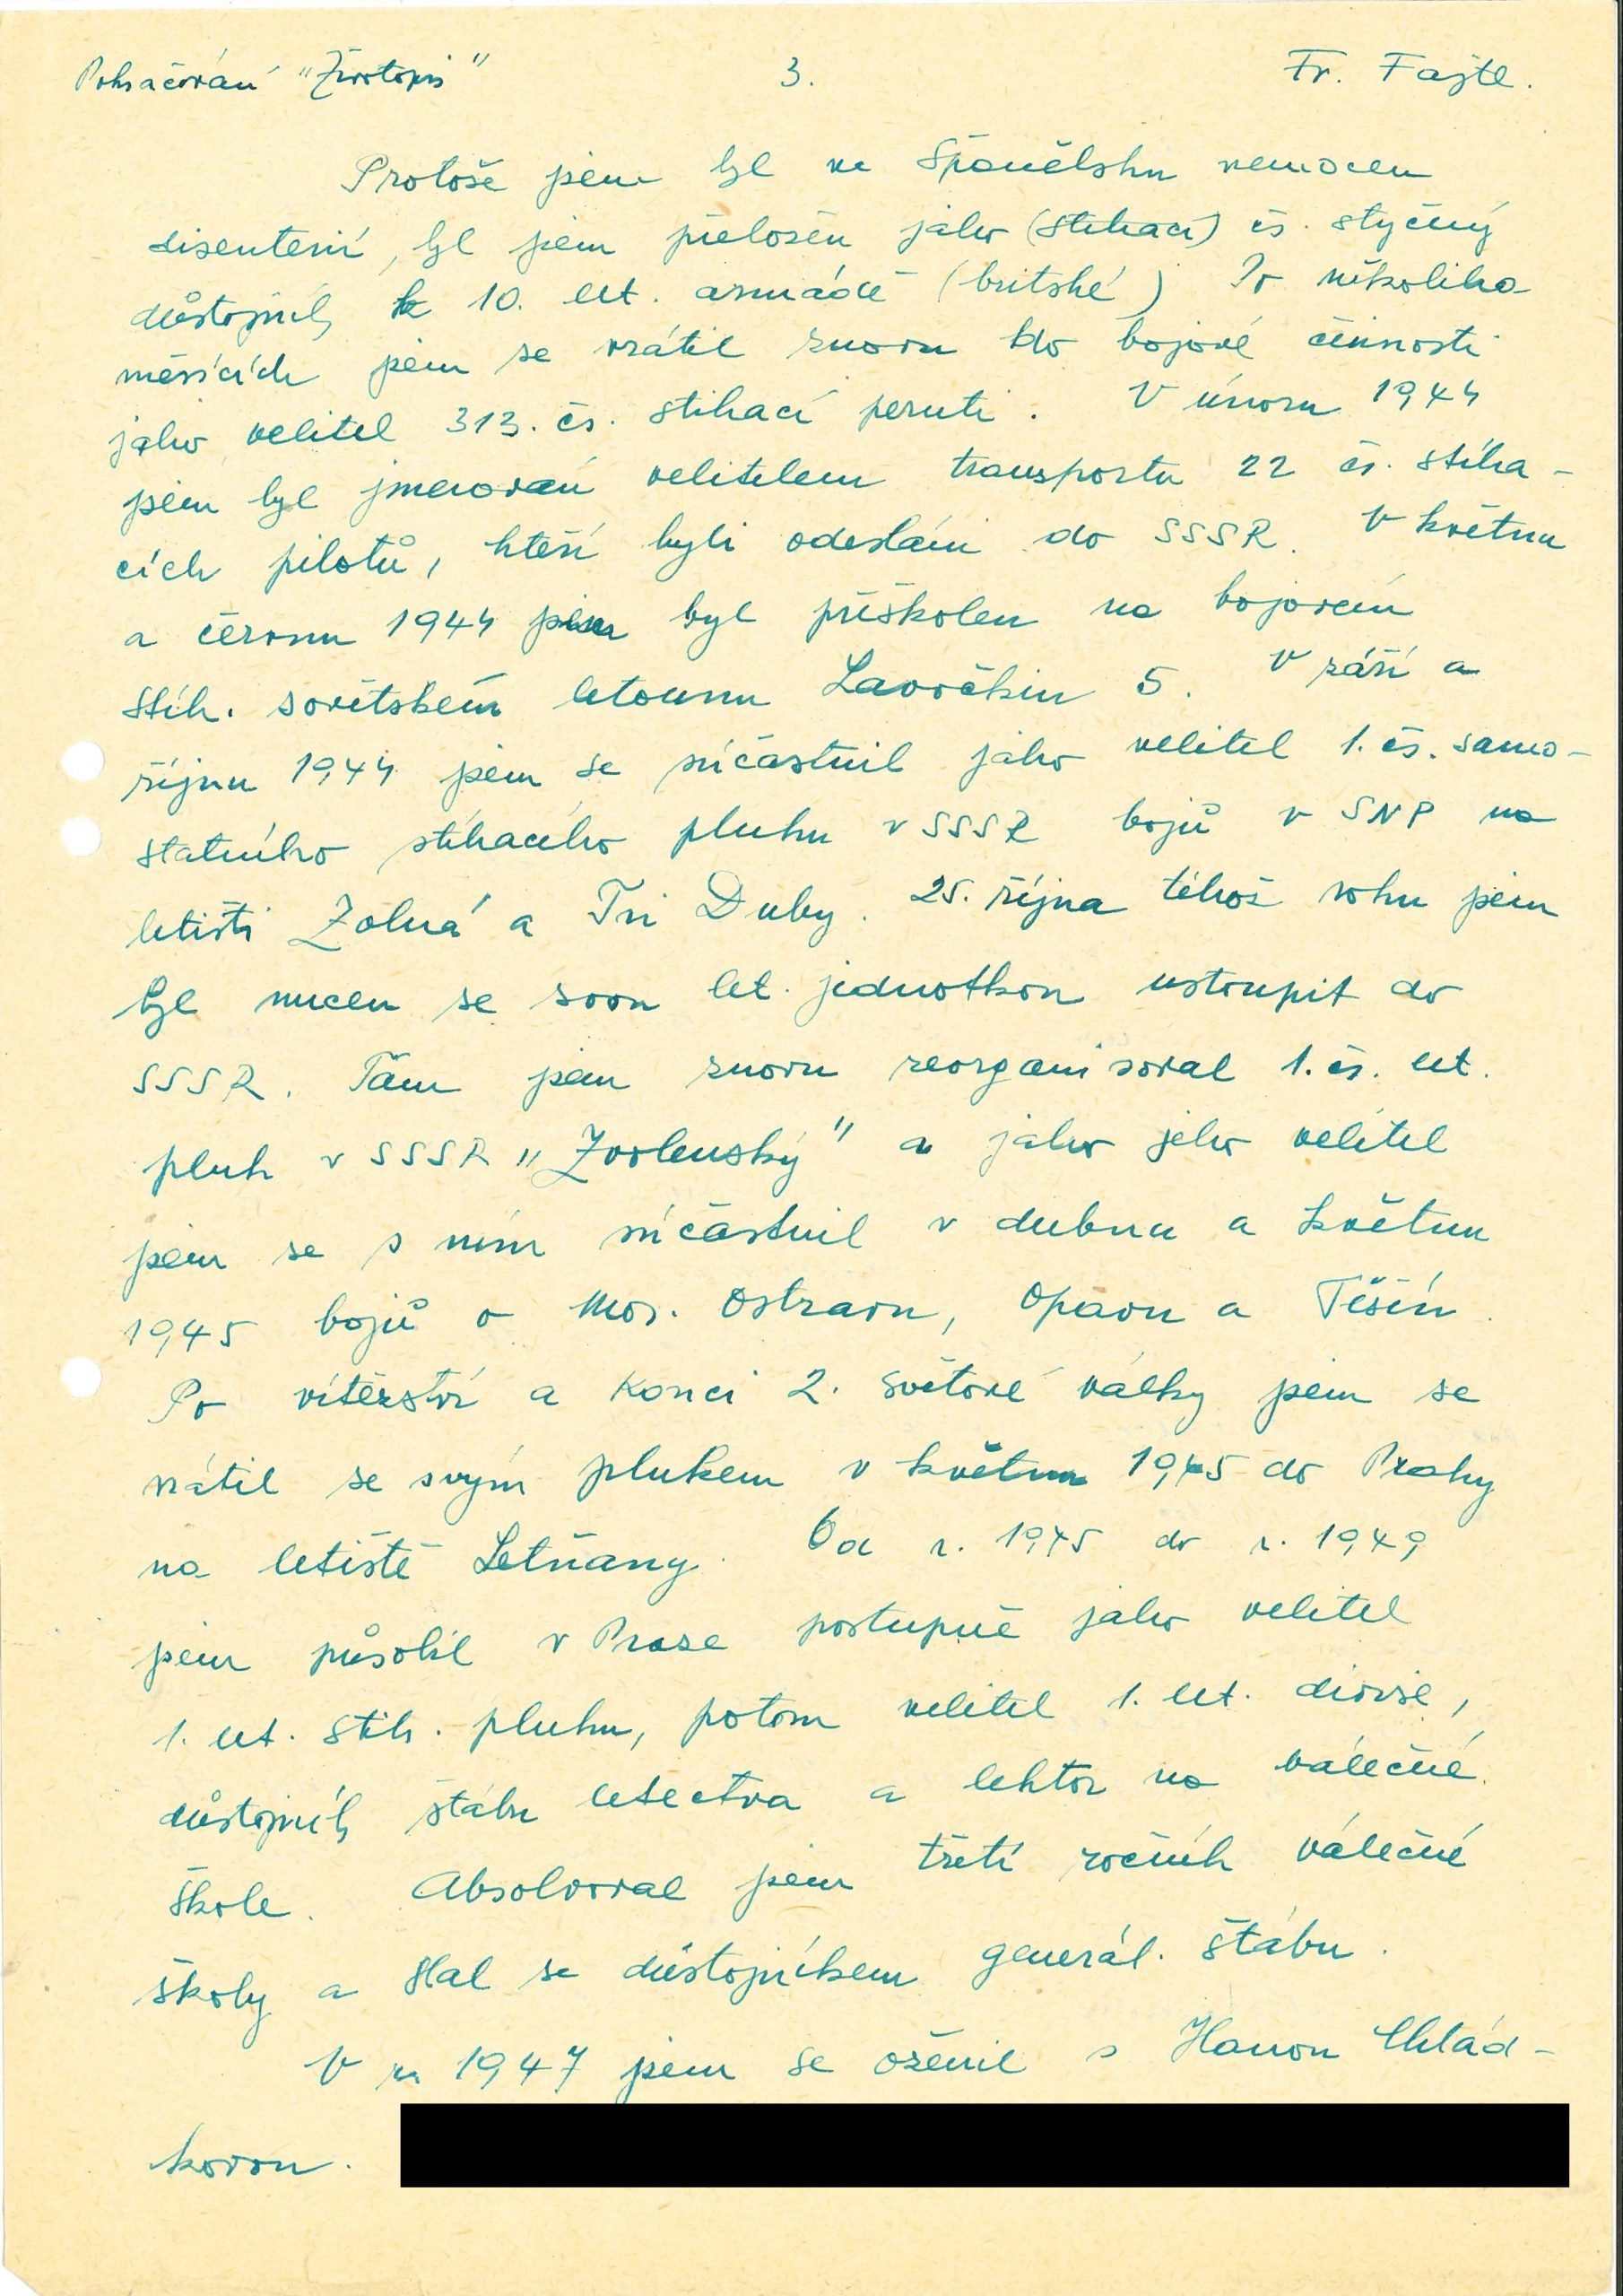 Pokračování "Životopis" 3. Fr. Fajtl.
Protože jsem byl ve Španělsku nemocen
disenterií, byl jsem přeložen jako (stíhací) čs. styčný
důstojník k 10. let. armádě (britské) Po několika
měsících jsem se vrátil znovu do bojové činnosti
jako velitel 313. čs. stíhací peruti. V únoru 1944
jsem byl jmenován velitelem transportu 22 čs. stíha-
cích pilotů, kteří byli odesláni do SSSR. V květnu
a červnu 1944 jsem byl přeškolen na bojovém
stíh. sovětském letounu Lavočkin 5. V září a
říjnu 1944 jsem se súčastnil jako velitel 1. čs. samo-
statného stíhacího pluku v SSSR bojů v SNP na
letišti Zolná a Tri Duby. 25. října téhož roku jsem
byl nucen se svou let. jednotkou ustoupit do
SSSR. Tam jsem znovu reorganisoval 1. čs. let.
pluk v SSSR "Zvolenský" a jako jeho velitel
jsem se s ním súčastnil v dubnu a květnu
1945 bojů o Mor. Ostravu, Opavu a Těšín.
Po vítězství a konci 2. světové války jsem se
vrátil se svým plukem v květnu 1945 do Prahy
na letiště Letňany. Od r. 1945 do r. 1949
jsem působil v Praze postupně jako velitel
1. let. stíh. pluku, potom velitel 1. let. divise,
důstojník štábu letectva a lektor na válečné
škole. Absolvoval jsem třetí ročník válečné
školy a stal se důstojníkem generál. štábu.
V r. 1947 jsem se oženil s Hanou Chlád-
kovou.